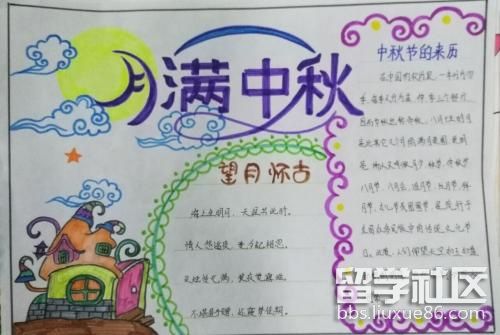 月满中秋
望月怀古
海上生明月，天涯共此时。
情人怨遥夜，竟夕起相思。
灭烛怜光满，披衣觉露滋。
不堪盈手赠，还寝梦佳期。
中秋节的来历
在中国的农历里，一年分为四
季，每季又分为孟、仲、季三个部分
因而中秋也称仲秋。八月十五的月
亮比其他几个月的满月更圆，更明
亮，所以又叫做月夕、秋节、仲秋节
八月节、八月会、追月节、玩月节、拜月
节、女儿节或团圆节，是流行于
全国众多民族中的传统文化节
日。此夜，人们仰望天空如玉如盘
留学社区
bbs.liuxue86.com